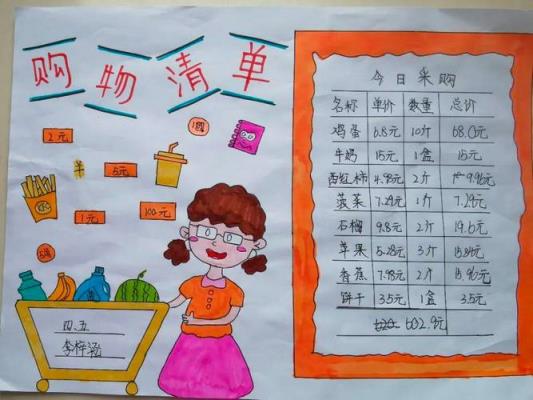 购物清单
2元
羊
5元
1元
100元
四、五
李梓涵
今日采购
名称 单价 数量 总价
鸡蛋 6.8元 10斤 68.0元
牛奶 15元 1盒 15元
西红柿 4.98元 2斤 9.96元
菠菜 7.29元 1斤 7.29元
石榴 9.8元 2斤 19.6元
苹果 5.28元 3斤 15.84元
香蕉 7.98元 2斤 15.96元
饼干 3.5元 1盒 3.5元
602.9元